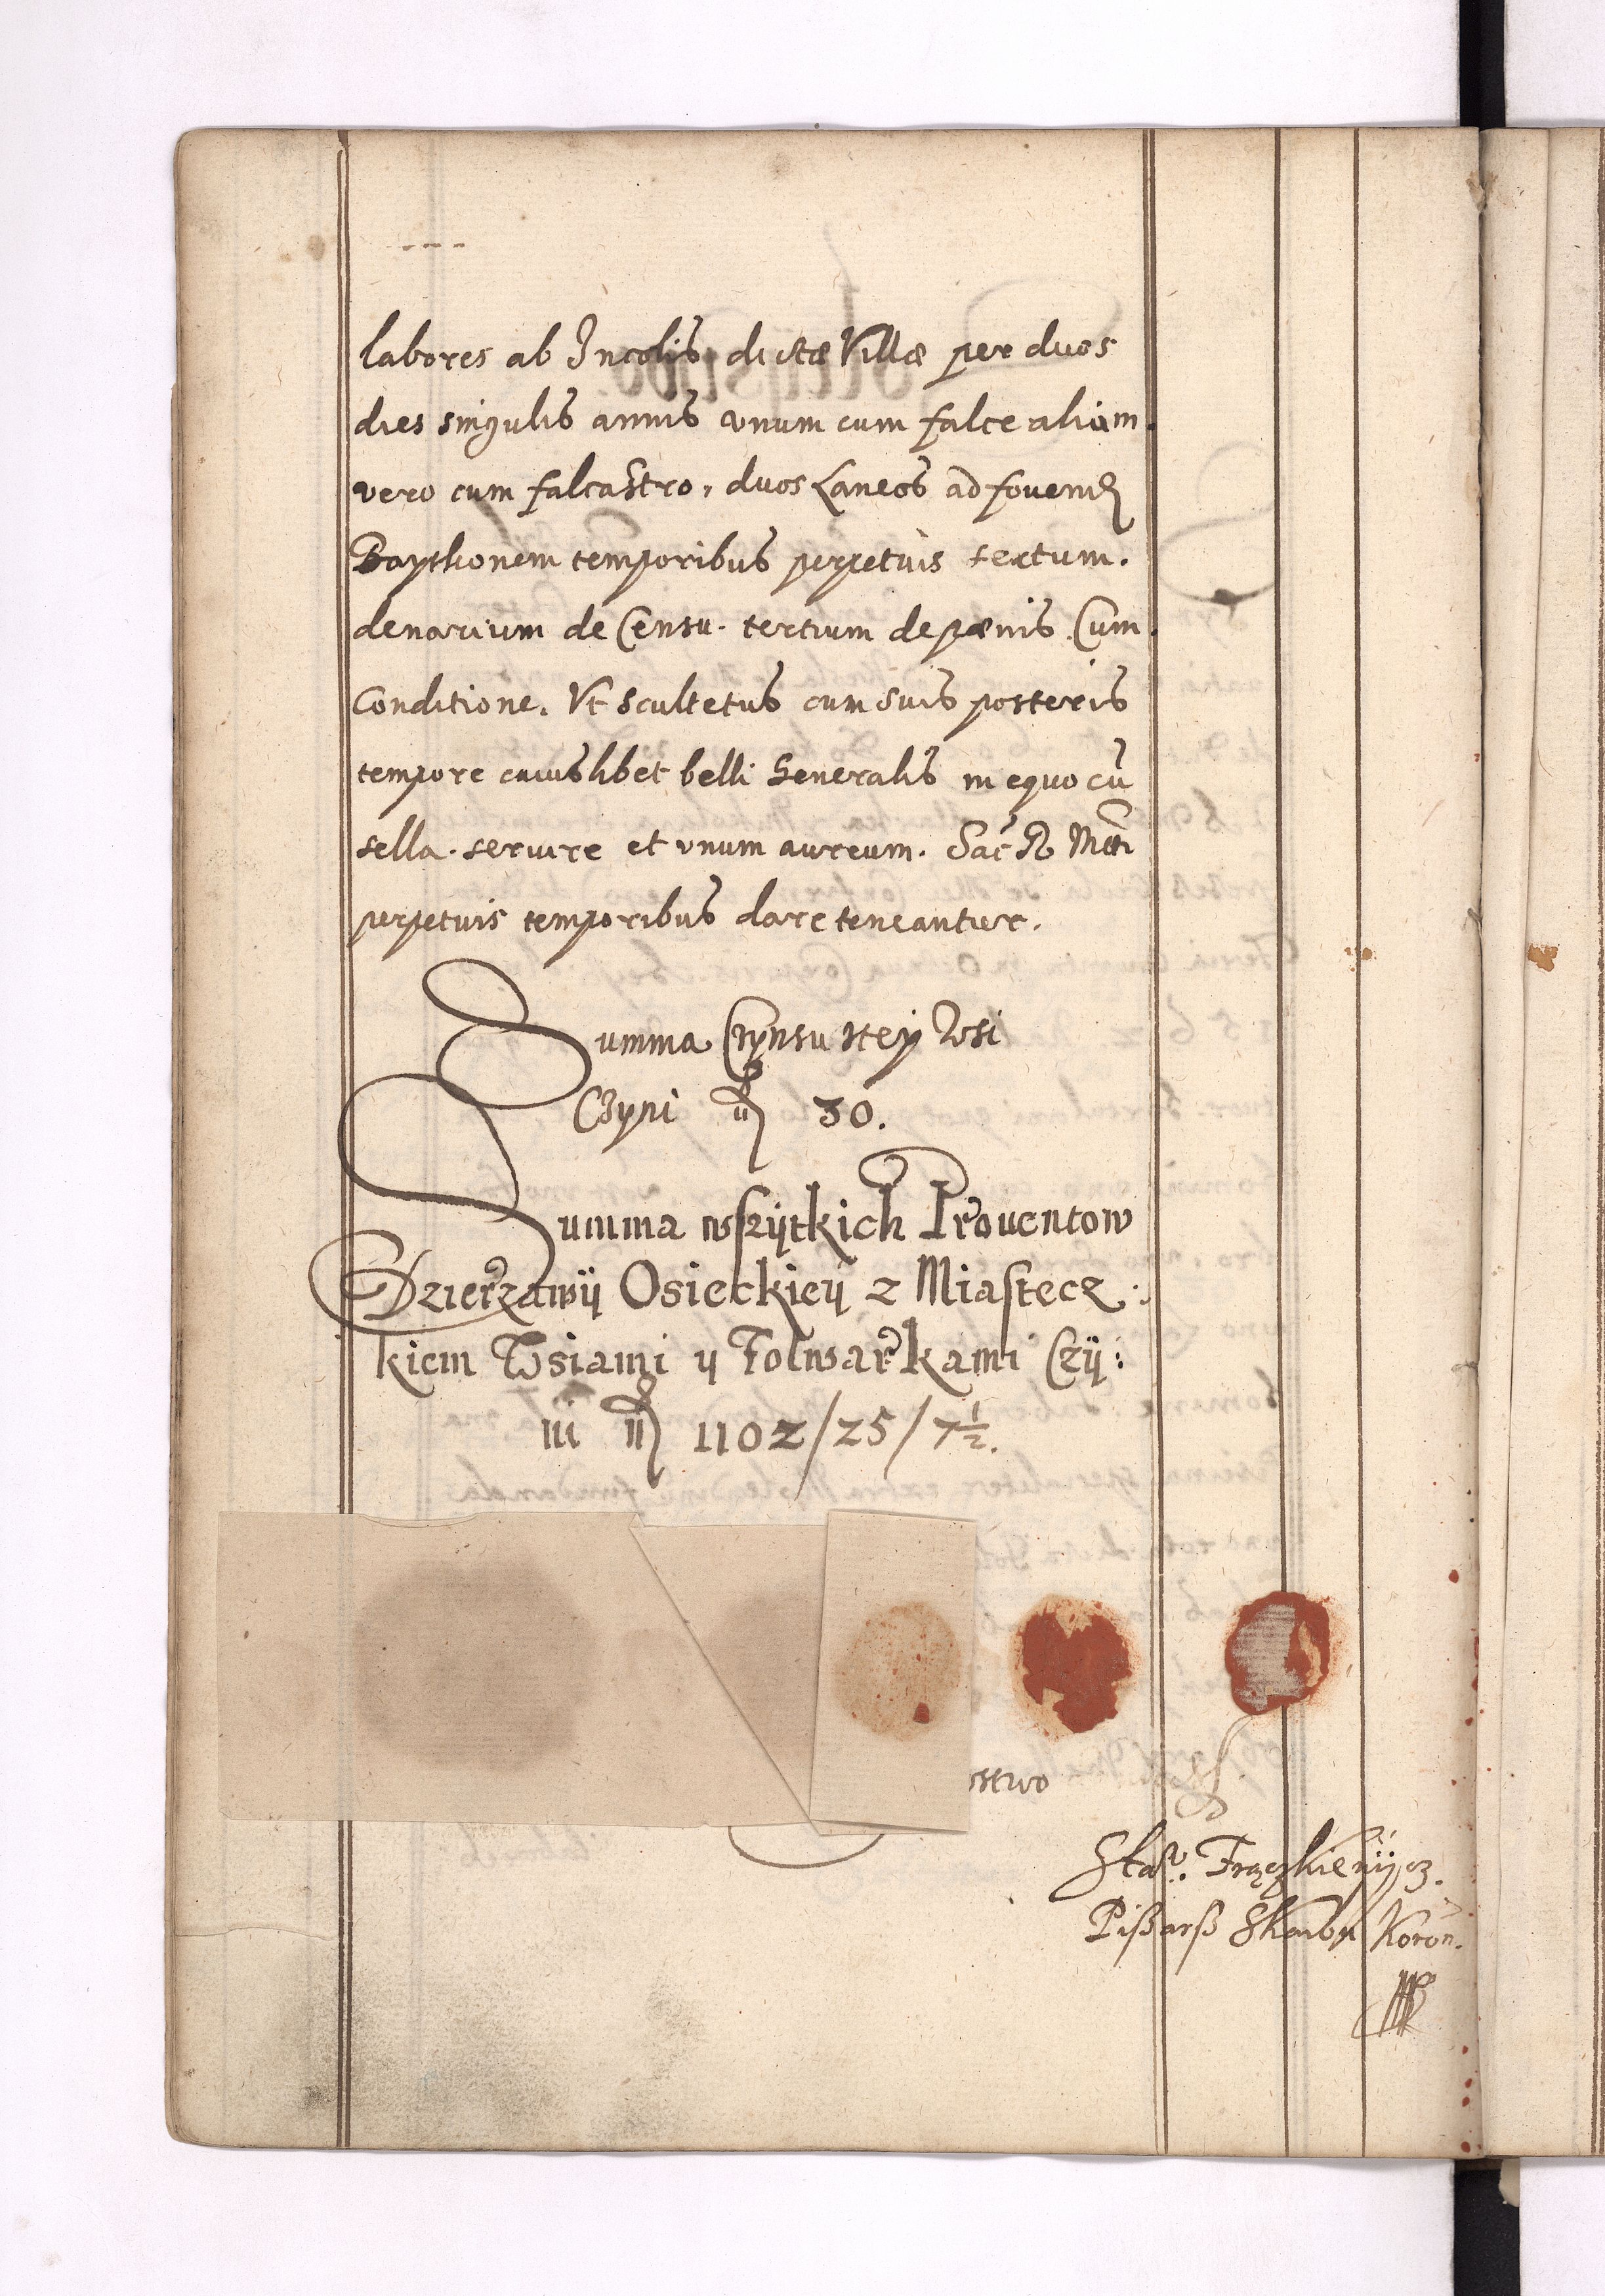 labores ab Incolis dictæ Villæ per duos
dies singulis annis vnum cum falce alium
vero cum falcastro, duos Laneos ad fouend
temporibus perpetuis sextum.
denarium de Censu. tertium de pænis. Cum
Conditione. Vt Scultetus cum suis posteris
tempore cuiuslibet belli Generalis in equo cū
sella. seruire et vnum aureum. Sac R Mtti
perpetuis temporibus dare teneantur.
Summa Czynsu stey Wsi
Czyni 30.
Summa wszÿtkich Prouentow
Dzierzawÿ Osieckieÿ z Miastecz:
kiem Wsiami ÿ Folwarkami Czÿ:
ni 1102/25/7½.
ostwo
Pißarß Skarbu Koron.